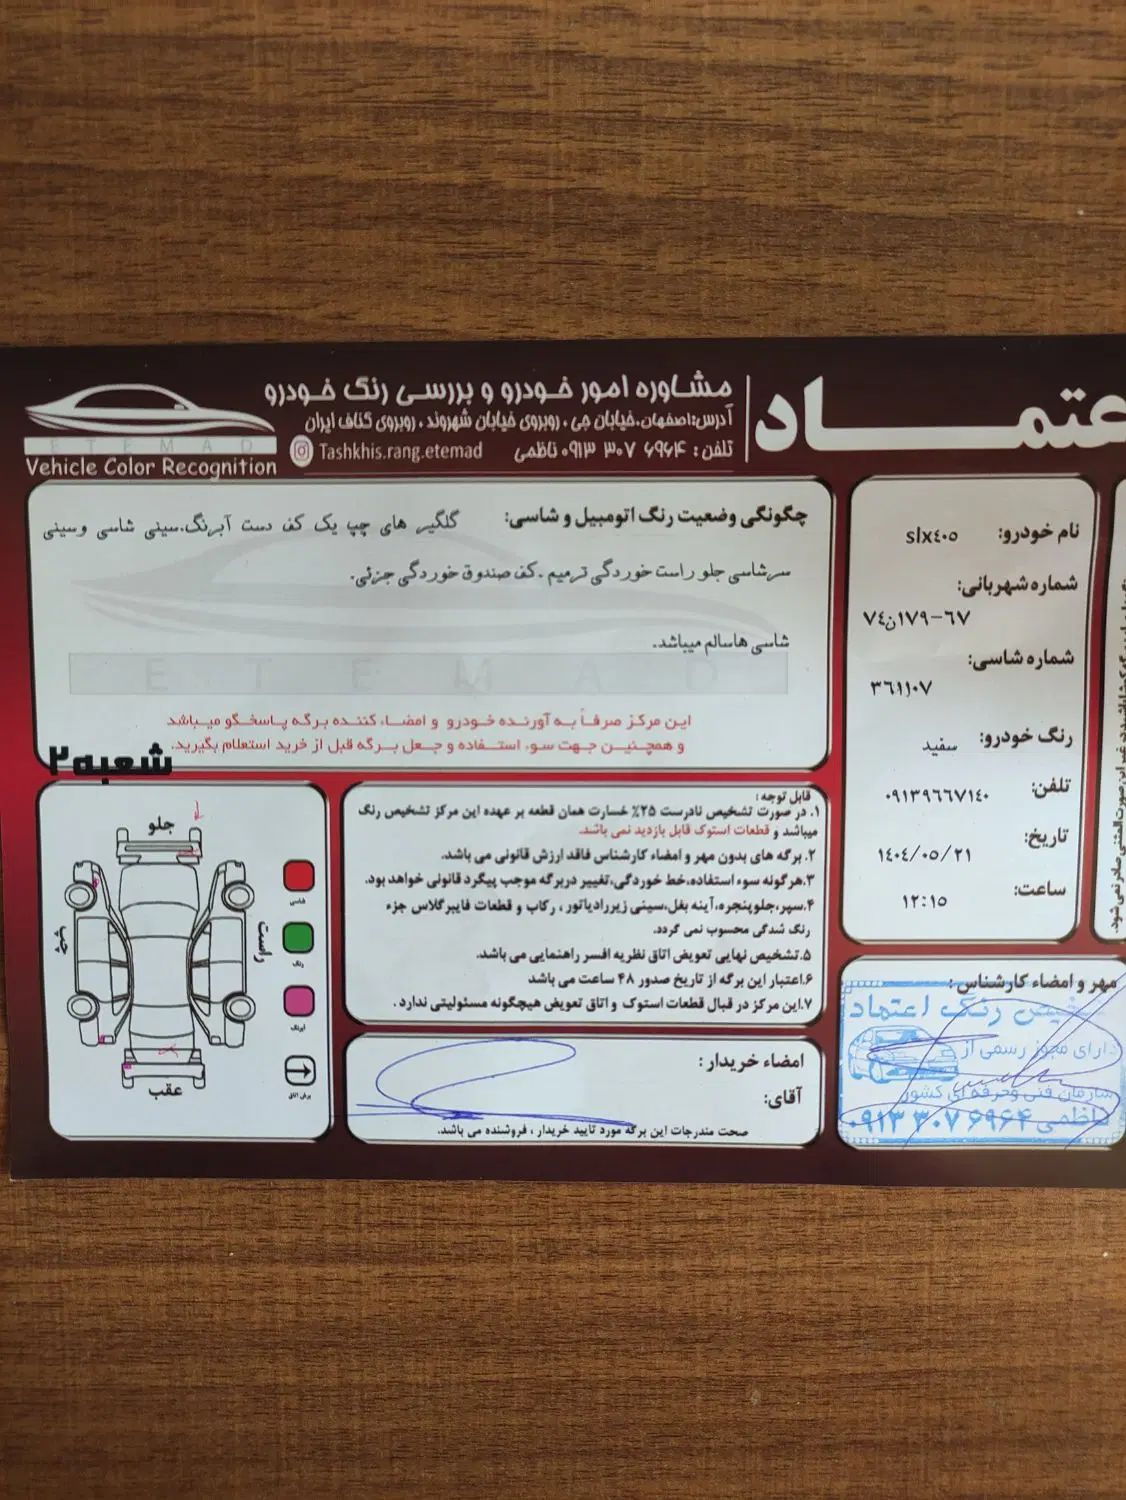 عتمـــاد
مشاوره امور خودرو و بررسی رنگ خودرو
آدرس:اصفهان،خیابان جی ، روبروی خیابان شهروند ، روبروی گناف ایران
تلفن : ۰۹۱۳ ۳۰۷ ۶۹۶۴ ناظمی
Tashkhis.rang.etemad
ETEMAD
Vehicle Color Recognition
نام خودرو: slx٤٠٥
شماره شهربانی:
٦٧-١٧٩ن٧٤
شماره شاسی:
رنگ خودرو: سفید
تلفن: ٠٩١٣٩٦٦٧١٤٠
تاریخ: ١٤٠٤/٠٥/٢١
ساعت: ١٢:١٥
چگونگی وضعیت رنگ اتومبیل و شاسی: گلگیر های چپ یک کف دست آبرنگ.سینی شاسی وسینی
سرشاسی جلو راست خوردگی ترمیم .کف صندوق خوردگی جزئی.
شاسی هاسالم میباشد.
ETEMAD
این مرکز صرفاً به آورنده خودرو و امضاء کننده برگه پاسخگو میباشد
و همچنین جهت سوء استفاده و جعل برگه قبل از خرید استعلام بگیرید.
شعبه۲
قابل توجه :
۱. در صورت تشخیص نادرست ۲۵٪ خسارت همان قطعه بر عهده این مرکز تشخیص رنگ
میباشد و قطعات استوک قابل بازدید نمی باشد.
۲. برگه های بدون مهر و امضاء کارشناس فاقد ارزش قانونی می باشد.
۳.هرگونه سوء استفاده، خط خوردگی،تغییر دربرگه موجب پیگرد قانونی خواهد بود.
۴.سپر،جلوپنجره،آینه بغل،سینی زیررادیاتور ، رکاب و قطعات فایبرگلاس جزء
رنگ شدگی محسوب نمی گردد.
۵.تشخیص نهایی تعویض اتاق نظریه افسر راهنمایی می باشد.
۶.اعتبار این برگه از تاریخ صدور ۴۸ ساعت می باشد
۷.این مرکز در قبال قطعات استوک و اتاق تعویض هیچگونه مسئولیتی ندارد .
جلو
راست
چپ
عقب
رنگ
آبرنگ
برش اتاق
امضاء خریدار :
آقای:
صحت مندرجات این برگه مورد تایید خریدار ، فروشنده می باشد.
مهر و امضاء کارشناس :
رنگ اعتماد
دارای مجوز رسمی از
سازمان فنی وحرفه ای کشور
ناظمی ۰۹۱۳ ۳۰۷ ۶۹۶۴